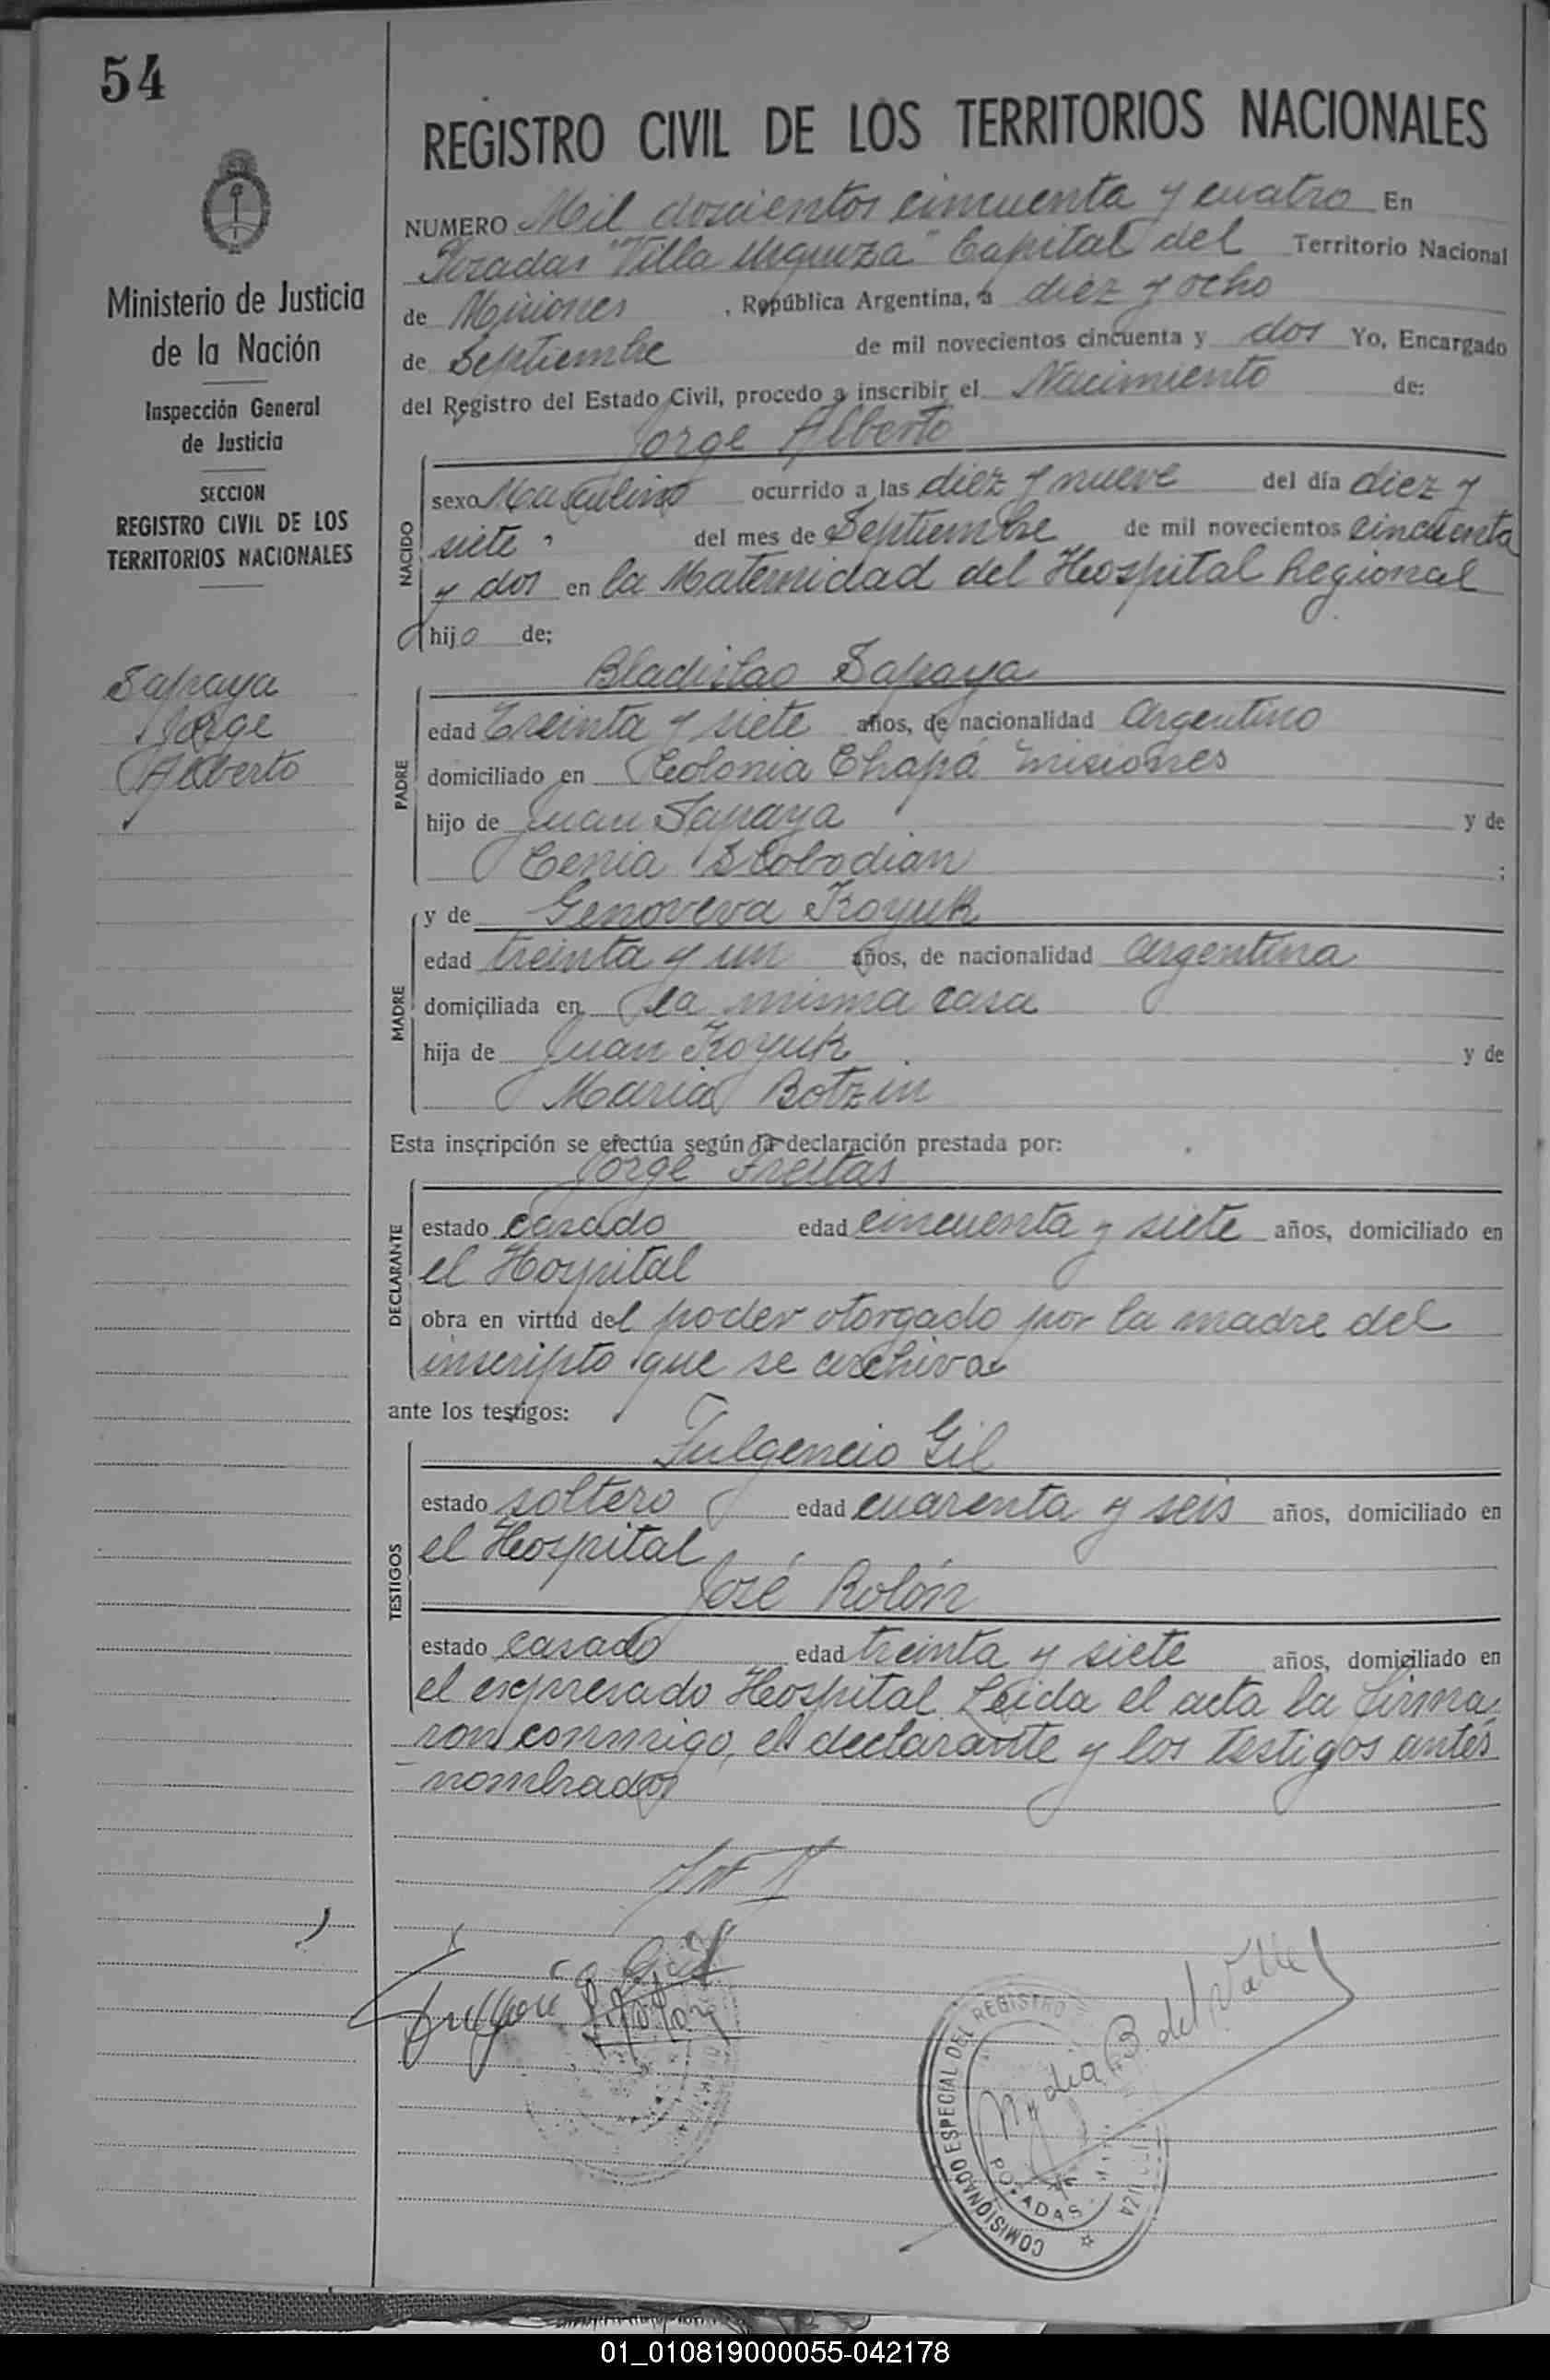 54
Ministerio de Justicia
de la Nación
Inspección General
de Justicia
SECCION
REGISTRO CIVIL DE LOS
TERRITORIOS NACIONALES
Sapaya
Jorge
Alberto
REGISTRO CIVIL DE LOS TERRITORIOS NACIONALES
NUMERO Mil doscientos cincuenta y cuatro En
Posadas "Villa Urquiza" Capital del Territorio Nacional
de Misiones, República Argentina, a diez y ocho
de Septiembre de mil novecientos cincuenta y dos Yo, Encargado
del Registro del Estado Civil, procedo a inscribir el Nacimiento de:
Jorge Alberto
NACIDO
sexo Masculino ocurrido a las diez y nueve del día diez y
siete, del mes de Septiembre de mil novecientos cincuenta
y dos en la Maternidad del Hospital Regional
hijo de;
Bladislao Sapaya
PADRE
edad treinta y siete años, de nacionalidad argentino
domiciliado en Colonia Chapá Misiones
hijo de Juan Sapaya y de
Cenia Slobodian ;
MADRE
y de Genoveva Koyuk
edad treinta y un años, de nacionalidad argentina
domiciliada en la misma casa
hija de Juan Koyuk y de
Maria Botzin
Esta inscripción se efectúa según la declaración prestada por:
Jorge Freitas
DECLARANTE
estado casado edad cincuenta y siete años, domiciliado en
el Hospital
obra en virtud del poder otorgado por la madre del
inscripto que se archiva
ante los testigos:
Fulgencio Gil
TESTIGOS
estado soltero edad cuarenta y seis años, domiciliado en
el Hospital
José Rolón
estado casado edad treinta y siete años, domiciliado en
el expresado Hospital. Leida el acta la firma
ron conmigo, el declarante y los testigos antes
nombrados
Nydia B. del Valle
COMISIONADO ESPECIAL DEL REGISTRO
POSADAS
01_010819000055-042178